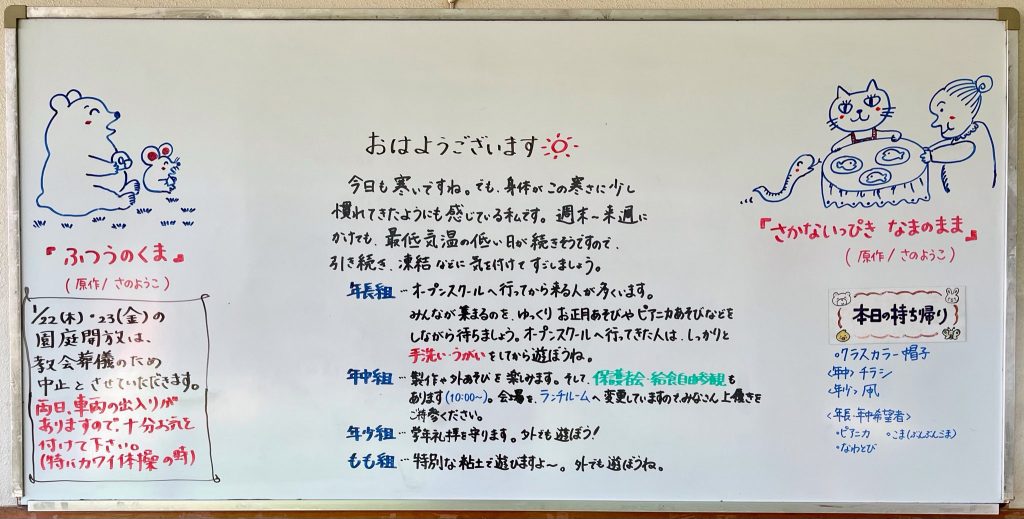 おはようございます
今日も寒いですね。でも、身体がこの寒さに少し
慣れてきたようにも感じている私です。週末〜来週に
かけても、最低気温の低い日が続きそうですので、
引き続き、凍結などに気を付けてすごしましょう。
年長組…オープンスクールへ行ってから来る人が多くいます。
みんなが集まるのを、ゆっくりお正月あそびやピアニカあそびなどを
しながら待ちましょう。オープンスクールへ行ってきた人は、しっかりと
手洗い・うがいをしてから遊ぼうね。
年中組…製作や外あそびを楽しみます。そして、保護者会・給食自由参観も
あります(10:00〜)。会場を、ランチルームへ変更していますので、みなさん上履きを
ご持参ください。
年少組…学年礼拝を守ります。外でも遊ぼう!
もも組…特別な粘土で遊びますよ〜。外でも遊ぼうね。
『ふつうのくま』
(原作/さのようこ)
1/22(木)・23(金)の
園庭開放は、
教会葬儀のため
中止とさせていただきます。
両日、車両の出入りが
ありますので、十分お気を
付けて下さい。
(特にカワイ体操の時)
『さかないっぴき なまのまま』
(原作/さのようこ)
本日の持ち帰り
○クラスカラー帽子
<年中>チラシ
<年少>凧
<年長・年中希望者>
○ピアニカ ○こま(ぶんぶんごま)
○なわとび